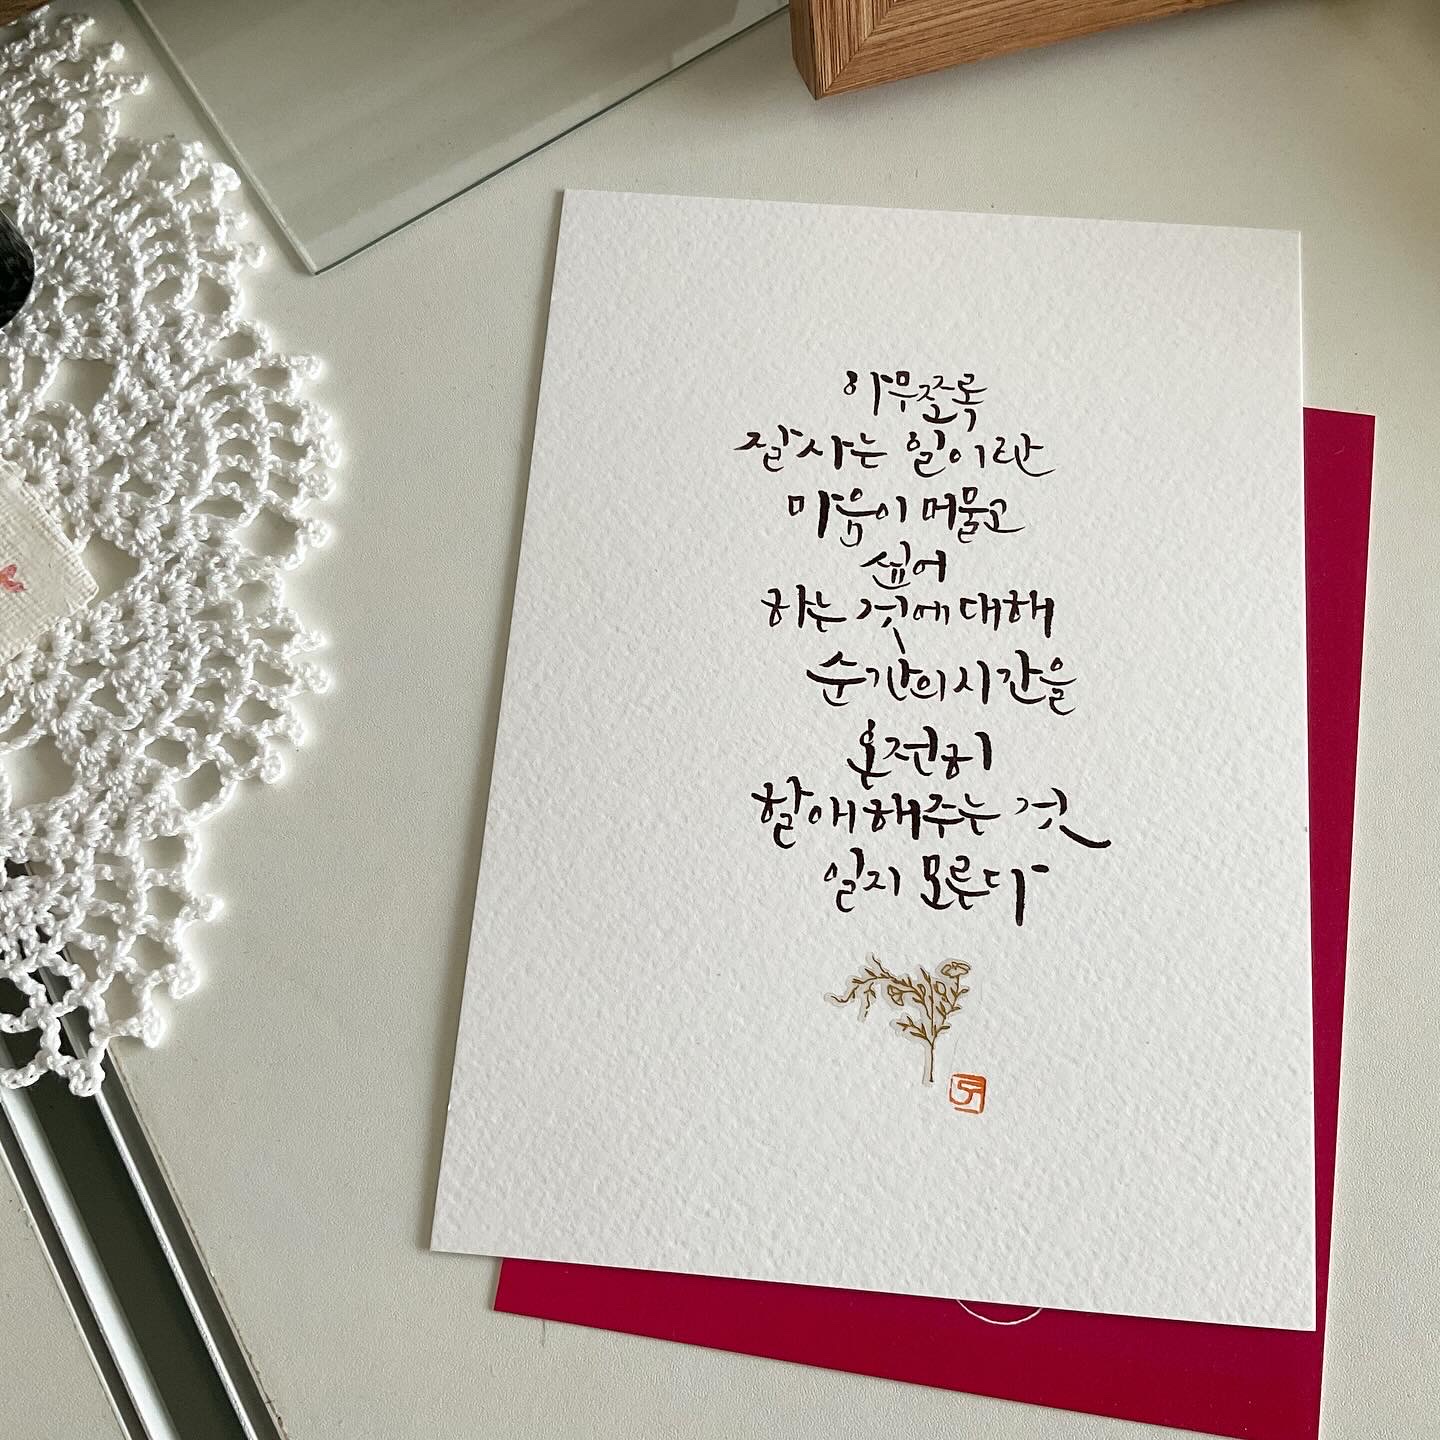 아무쪼록
잘 사는 일이란
마음이 머물고
싶어
하는 것에 대해
순간의 시간을
온전히
할애해주는 것
일지 모른다